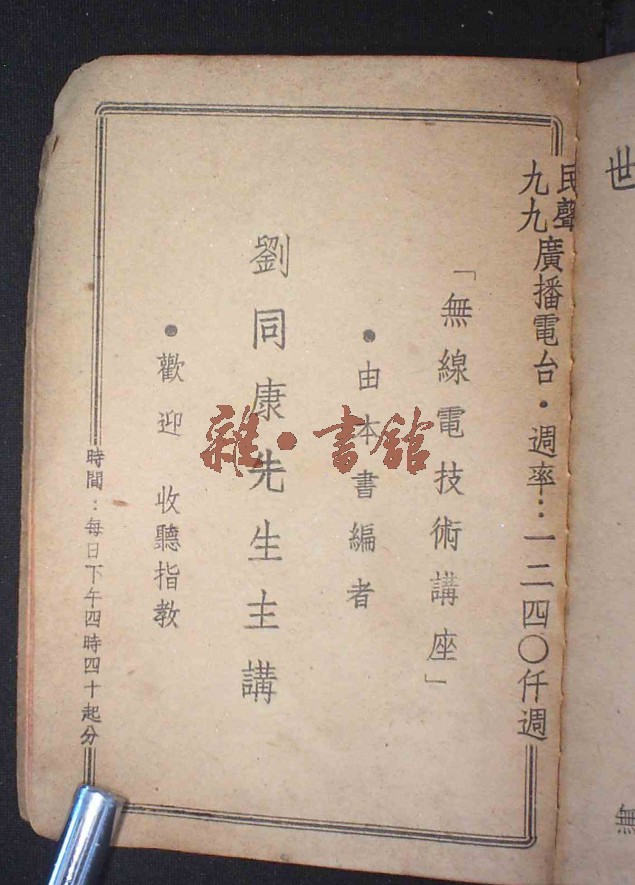 世
無
民聲
九九
廣播電台・週率：一二四〇仟週
「無線電技術講座」
●由本書編者
劉同康先生主講
●歡迎 收聽指教
時間：每日下午四時四十起分
雜・書館